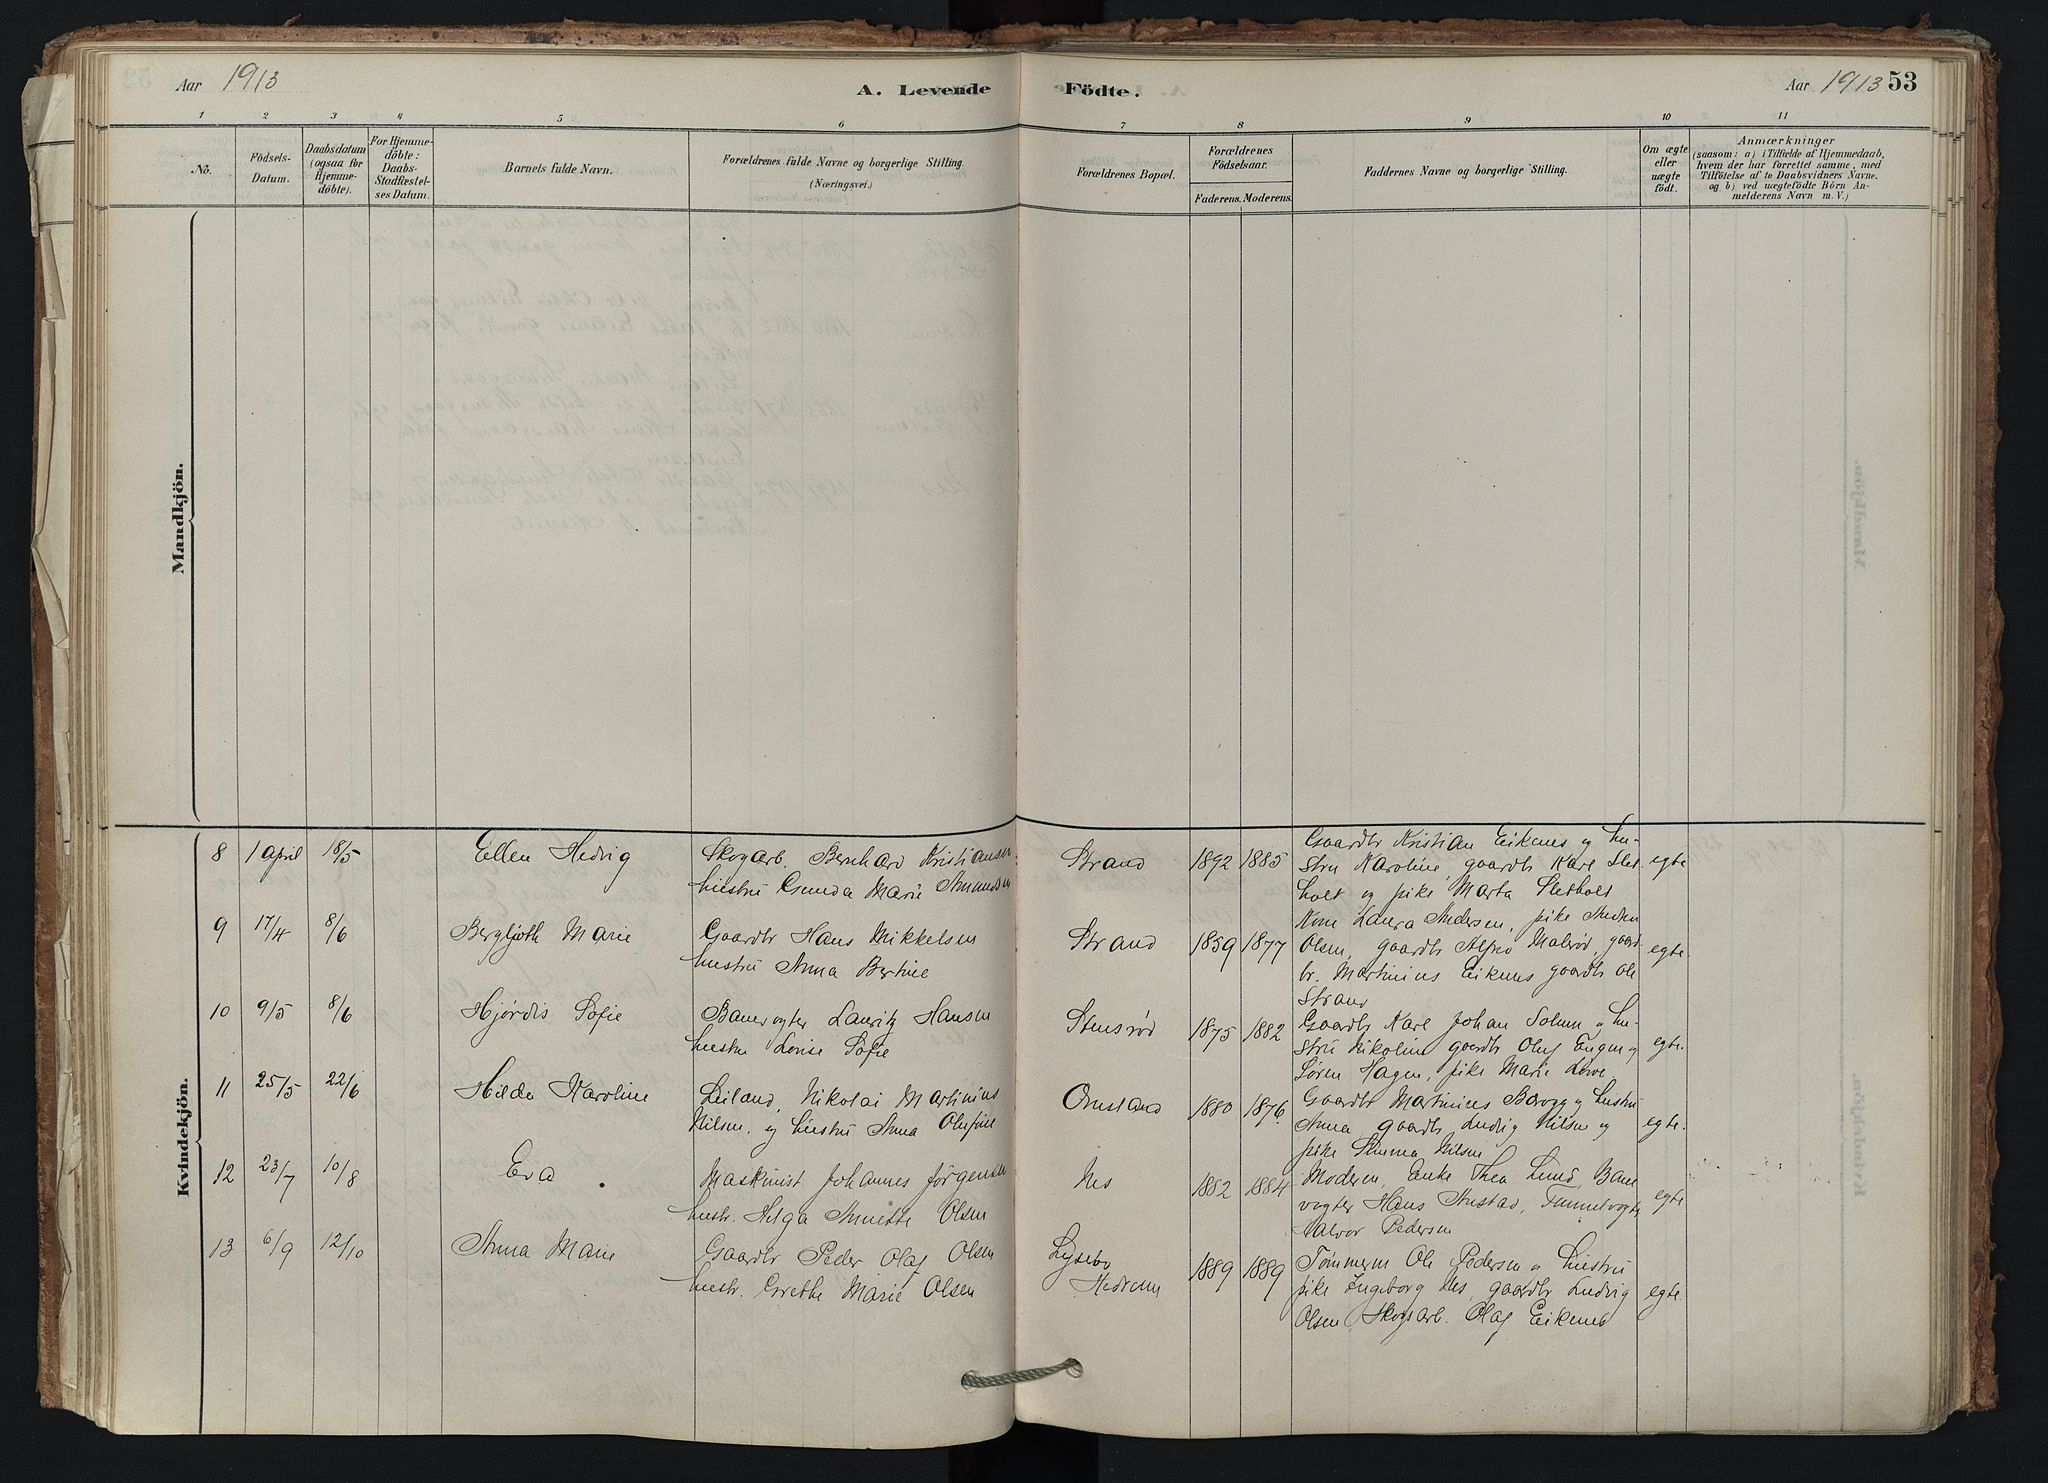 Aar 1913
A. Levende
Födte.
Aar 1913 53
1 2 3 4 5 6 7 8 9 10 11
No.
Födsels-
Datum.
Daabsdatum
(ogsaa for
Hjemme-
döbte).
For Hjemme-
döbte:
Daabs-
Stadfæstel-
ses Datum.
Barnets fulde Navn.
Forældrenes fulde Navne og borgerlige Stilling.
(Næringsvei.)
Forældrenes Bopæl.
Forældrenes
Födselsaar.
Faderens. Moderens.
Faddernes Navne og borgerlige Stilling.
Om ægte
eller
uægte
födt.
Anmærkninger
(saasom: a) i Tilfælde af Hjemmedaab,
hvem der har forrettet samme, med
Tilföielse af to Daabsvidners Navne,
og b) ved uægtefödte Börn An-
melderens Navn m. V.)
Mandkjön.
Kvindekjön.
8 1 april 18/5 Ellen Hedvig
Skogarb. Bernhard Kristiansen
hustru Gunda Marie Amundsen
Strand 1892 1885
Gaardbr Kristian Eikenes og hu-
stru Karoline, gaardb Kare Slet
holt og pike Marta Sletholt
egte
9 17/4 8/6 Bergljoth Marie
Gaardbr Hans Mikkelsen
hustru Anna Bertine
Strand 1859 1877
Kone Laura Andersen, pike
Olsen, gaardb Alfred gaard
br. Martinius Eikenes gaardb Ole
Strand
egte.
10 9/5 8/6 Hjørdis Sofie
Banevogter Lauritz Hansen
hustru Lovise Sofie
Stensrød 1875 1882
Gaardbr Karl Johan Solum og hu-
stru Nikoline gaardb Oluf Engen og
Søren Hagen, pike Marie Løve.
egte.
11 25/5 22/6 Hilda Karoline
Leiland, Nikolai Martinius
Nilsen. og hustru Anna Olufine
Omsland 1880 1876.
Gaardbr Martinius hustru
Anna gaardb Ludvig Nilsen og
pike Nilsen
egte.
12 23/7 10/8 Eva
Maskinist Johannes Jörgensen
hustr. Helga Annette Olsen
Nes 1882 1884
Moderen, Enke Thea Lund, Bane
vogter Hans Tunnelvogter
Halvor Pedersen
egte
13 6/9 12/10 Anna Marie
Gaardbr Peder Olaf Olsen
hustr. Grethe Marie Olsen
Lysebo
Hedrum 1889 1889
Tømmerm Ole Pedersen og hustru
pike Ingeborg Nes, gaardbr Ludvig
Olsen Skogsarb. Olaf Eikenes
egte.